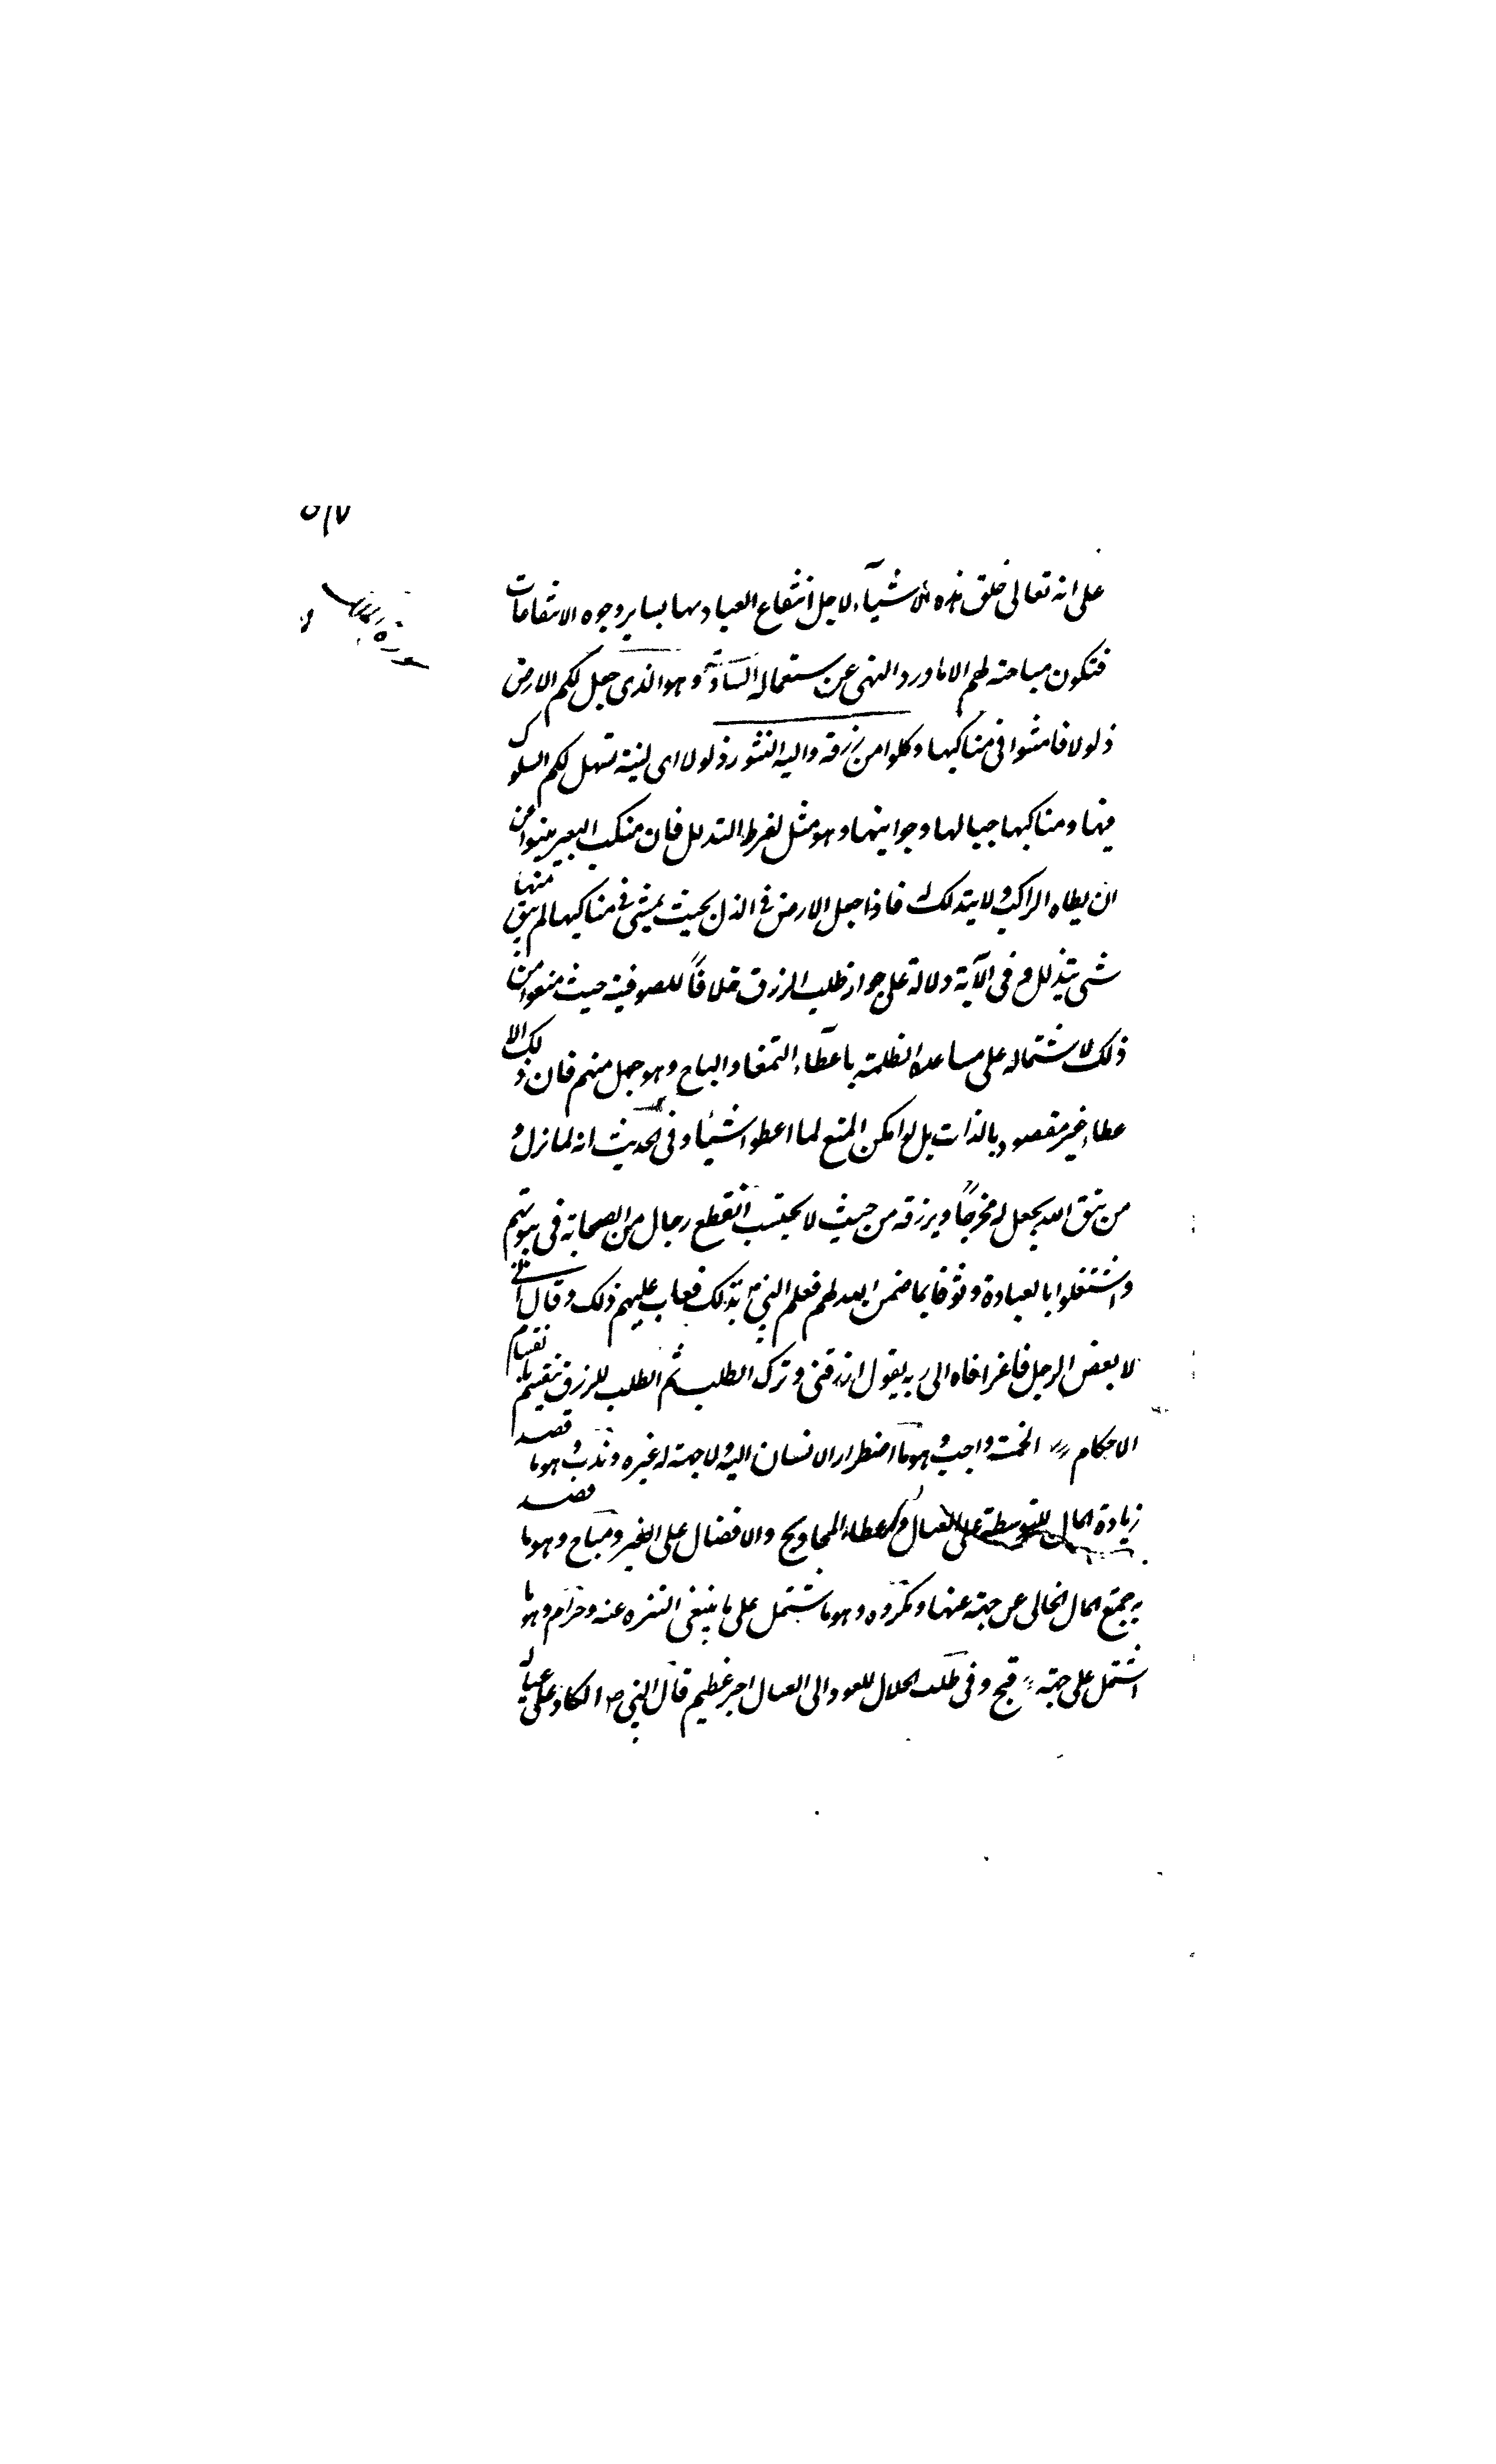 على انه تعالى خلق هذه الاشيآء لاجل انتفاع العباد بها بساير وجوه الانتفاعات
فتكون مباحة لهم الا ما ورد النهى عن استعماله السادسة وهو الذى جعل لكم الارض
ذلولا فامشوا فى مناكبها وكلوا من رزقه واليه النشور ذلولا اى لينة تسهل لكم السلوك
فيها ومناكبها جبالها وجوانبها وهو مثل لفرط التذلل فان منكب البعير ينبوا عن
ان يطاه الراكب ولا يتذلل له فاذا جعل الارض فى الذل بحيث يمشى فى مناكبها لم يبق منها
شى يتذلل و فى الآية دلالة على جواز طلب الرزق خلافاً للصوفية حيث منعوا من
ذلك لاشتماله على مساعدة الظلمة باعطآء التمغا والباج وهو جهل منهم فان ذلك الا
عطاء غير مقصود بالذات بل لو امكن المنع لما اعطوا شيئا وفى الحديث انه لما نزل و
من يتق الله يجعل له مخرجاً ويرزقه من حيث لا يحتسب انقطع رجال من الصحابة فى بيوتهم
واشتغلوا بالعبادة وثوقا بما ضمن الله لهم فعلم النبى ص بذلك فعاب عليهم ذلك وقال انى
لابغض الرجل فاغرا فاه الى ربه يقول ارزقنى وترك الطلب ثم الطلب للرزق ينقسم بانقسام
الاحكام الخمسة واجب وهو ما اضطرار الانسان اليه ولا جهة له غيره وندب وهو ما قصد
زيادة المال للتوسطة على العيال واعطاء المحاويج والافضال على الغير ومباح وهو ما قصد
به جمع المال الخالى عن جهة عنها ومكروه وهو ما يشتمل على ما ينبغى التنزه عنه وحرام وهو ما
اشتمل على جهة قبح وفى طلب الحلال للعود الى العيال اجر عظيم قال النبى ص الكاد على عياله